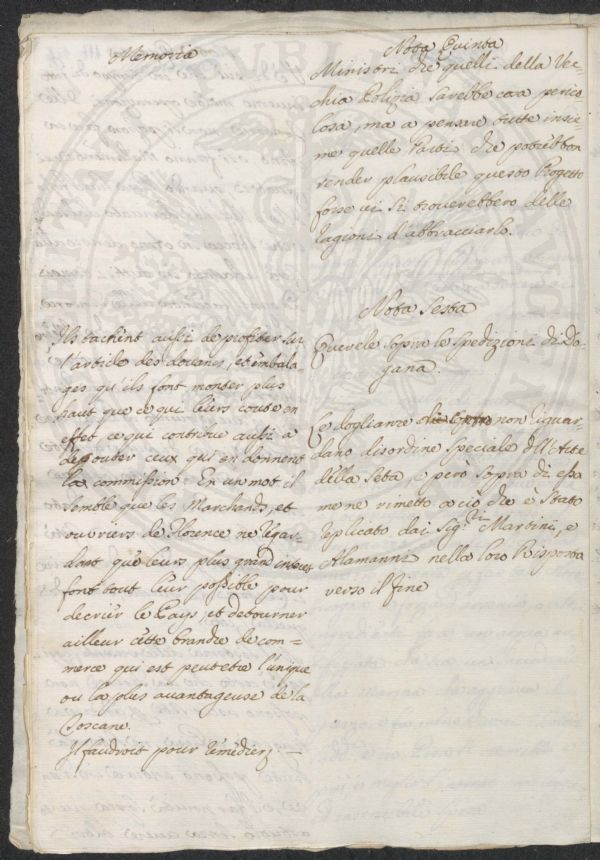 Memoria
Ils tachent aussi de profiter sur
l'article des douanes, et embala-
ges qu'ils font monter plus
haut que ce qui leurs coute en
effet ce qui contribue aussi a
degouter ceux qui en donnent
la commission. En un mot il
semble que les Marchands, et
ouvriers de Florence ne regar-
dant que leurs plus grand interet
font tout leur possible pour
decrier le Pays, et detourner
ailleur cette brandre de com-
merce qui est peutetre l'unique
ou la plus avantageuse de la
Toscane.
Il faudroit pour remedier,
Nota Quinta
Ministri che quelli della Vec-
chia Polizia sarebbe cosa perico-
losa, ma a pensare tutte insie-
me quelle Parti che potrebbon
render plausibile questo Progetto
forse vi si troverebbero delle
ragioni d'abbracciarlo.
Nota Sesta
Querele sopra le spedizioni di Do-
gana.
Le doglianze non riguar-
dano disordine speciale dell'Arte
della Seta, e però sopra di essa
me ne rimetto a ciò che è stato
replicato dai Sig.ri Martini, e
Alamanni nella loro Risposta
verso il fine